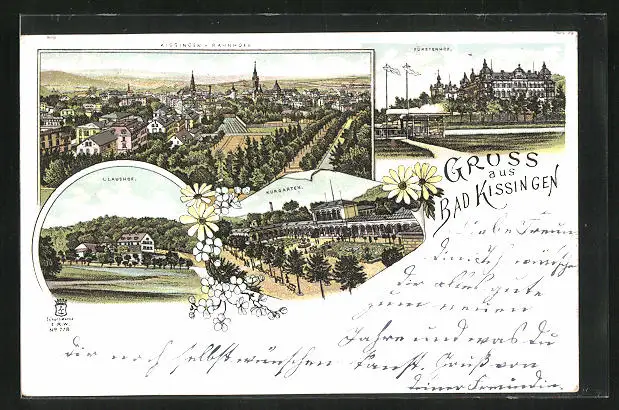 KISSINGEN - BAHNHOF.
FÜRSTENHOF.
GRUSS
aus
BAD KISSINGEN
CLAUSHOF.
KURGARTEN.
Schutzmarke
E.R.W.
No 778
Liebe Freun
din ich wünsche
dir alles gute
zum neuen
Jahre und was du
dir noch selbst wünschen kanst. Gruß von
deiner Freundin.